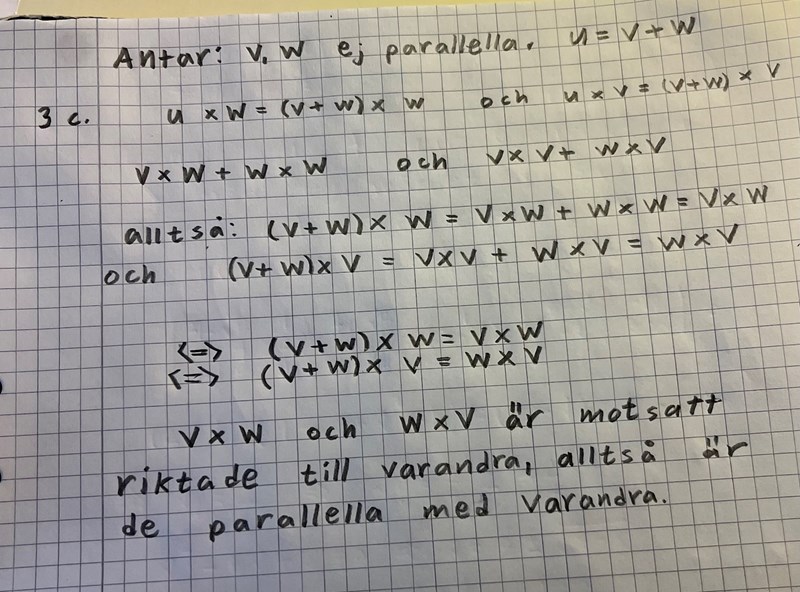 Antar: v, w ej parallella. u = v + w
3 c. u × w = (v + w) × w och u × v = (v+w) × v
v × w + w × w och v × v + w × v
alltså: (v + w) × w = v × w + w × w = v × w
och (v + w) × v = v × v + w × v = w × v
<=> (v + w) × w = v × w
<=> (v + w) × v = w × v
v × w och w × v är motsatt
riktade till varandra, alltså är
de parallella med varandra.